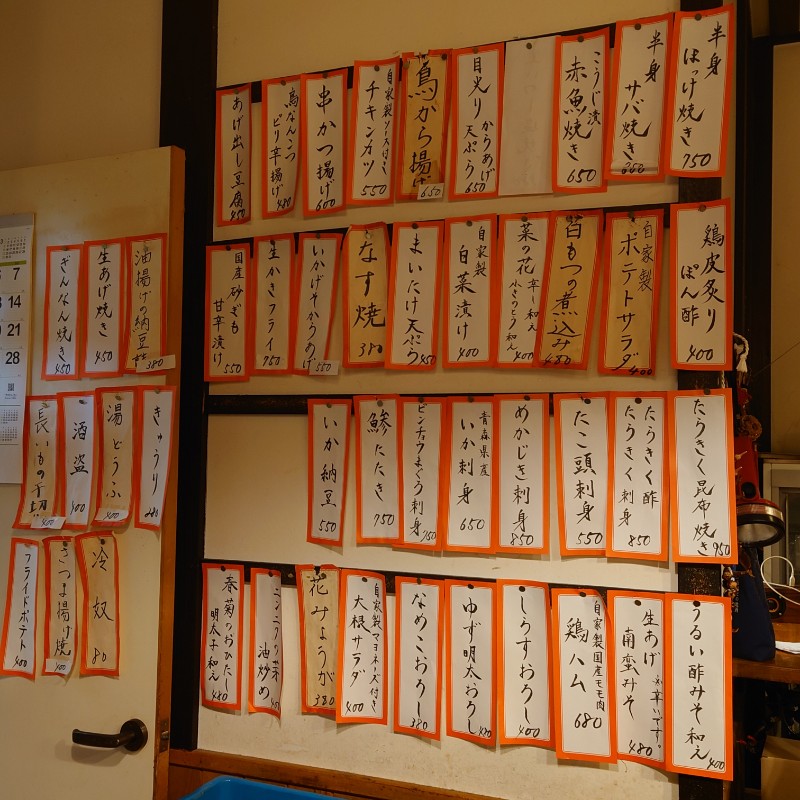 半身
ほっけ焼き
750
半身
サバ焼き
こうじ漬
赤魚焼き
650
目光り
からあげ
天ぷら
650
鳥から揚げ
650
自家製ソース付き
チキンカツ
550
串かつ揚げ
600
鳥なんこつ
ピリ辛揚げ
480
あげ出し豆腐
450
鶏皮炙り
ぽん酢
400
自家製
ポテトサラダ
400
もつの煮込み
480
菜の花
辛し和え
400
自家製
白菜漬け
400
まいたけ天ぷら
450
なす焼
380
いかげそからあげ
550
生かきフライ
750
国産砂ぎも
甘辛漬け
550
たらきく昆布焼き
950
たらきく酢
たらきく刺身
850
たこ頭刺身
550
めかじき刺身
850
青森県産
いか刺身
650
ビンチョウまぐろ刺身
750
鯵たたき
750
いか納豆
550
うるい酢みそ和え
400
生あげ
※辛いです。
南蛮みそ
480
自家製国産モモ肉
鶏ハム
680
しらすおろし
400
ゆず明太おろし
480
なめこおろし
380
自家製マヨネーズ付き
大根サラダ
400
花みょうが
380
ニンニクの芽
油炒め
春菊のおひたし
明太子和え
480
油揚げの納豆
380
生あげ焼き
450
ぎんなん焼き
450
きゅうり
湯どうふ
400
酒盗
400
長いもの千切
400
冷奴
80
きつま揚げ焼
400
フライドポテト
400
7
14
21
28